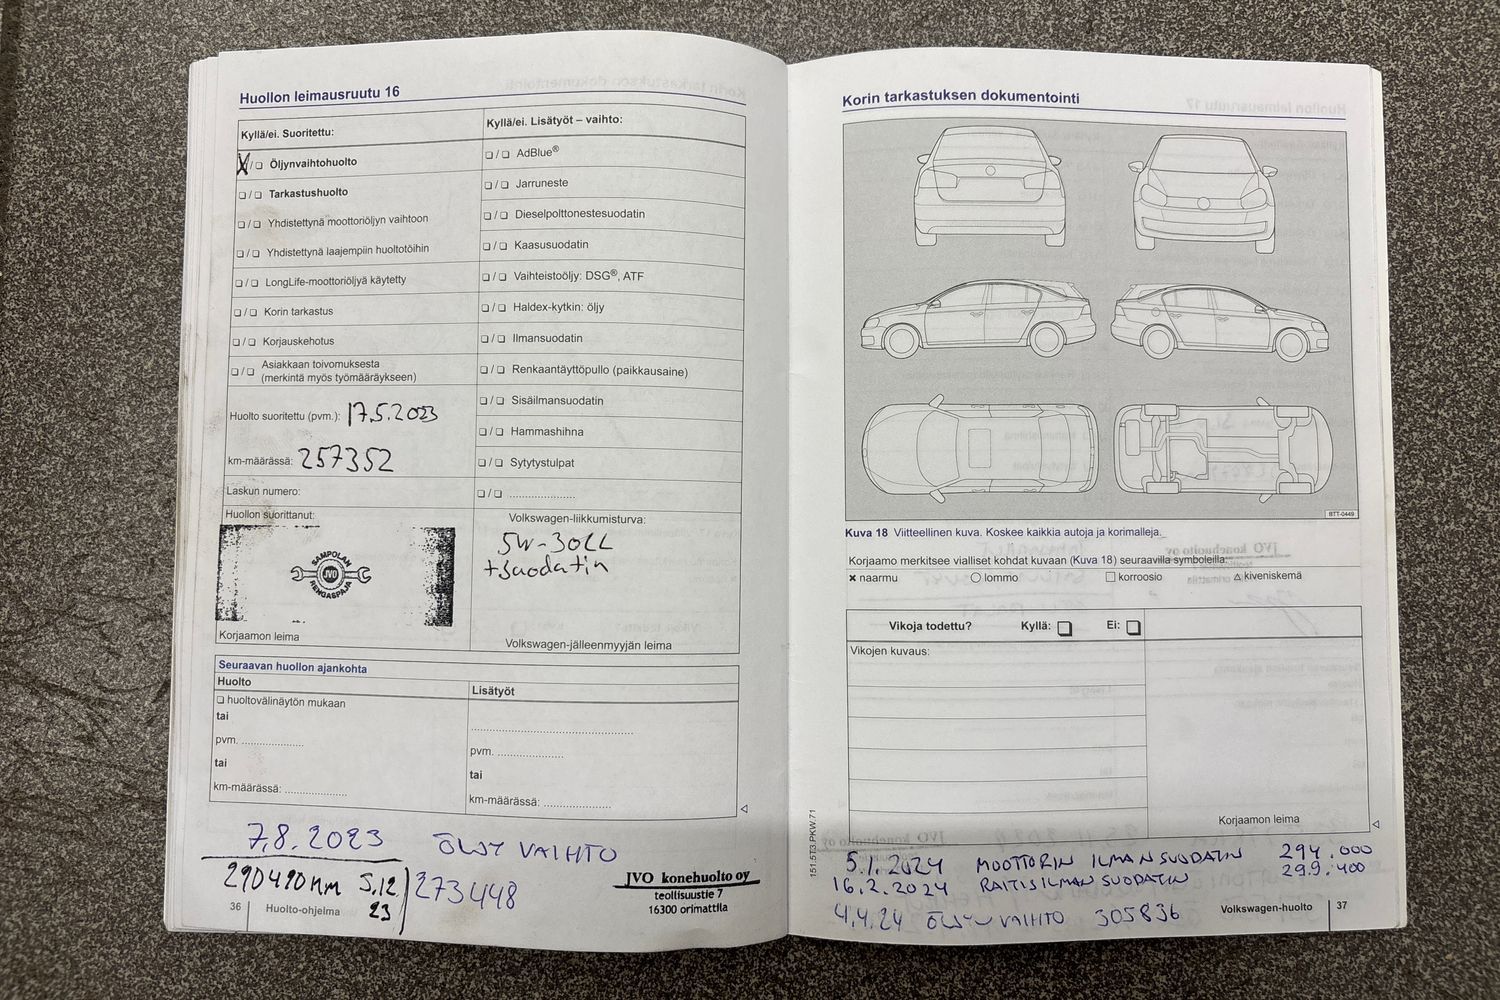 Huollon leimausruutu 16
Kyllä/ei. Suoritettu:
X/❏ Öljynvaihtohuolto
❏/❏ Tarkastushuolto
❏/❏ Yhdistettynä moottoriöljyn vaihtoon
❏/❏ Yhdistettynä laajempiin huoltotöihin
❏/❏ LongLife-moottoriöljyä käytetty
❏/❏ Korin tarkastus
❏/❏ Korjauskehotus
❏/❏ Asiakkaan toivomuksesta
(merkintä myös työmääräykseen)
Huolto suoritettu (pvm.): 17.5.2023
km-määrässä: 257352
Laskun numero:
Huollon suorittanut:
SAMPOLAN
JVO
RENGASPAJA
Korjaamon leima
Kyllä/ei. Lisätyöt – vaihto:
❏/❏ AdBlue®
❏/❏ Jarruneste
❏/❏ Dieselpolttonestesuodatin
❏/❏ Kaasusuodatin
❏/❏ Vaihteistoöljy: DSG®, ATF
❏/❏ Haldex-kytkin: öljy
❏/❏ Ilmansuodatin
❏/❏ Renkaantäyttöpullo (paikkausaine)
❏/❏ Sisäilmansuodatin
❏/❏ Hammashihna
❏/❏ Sytytystulpat
❏/❏ ......................
Volkswagen-liikkumisturva:
5W-30LL
+suodatin
Volkswagen-jälleenmyyjän leima
Seuraavan huollon ajankohta
Huolto
❏ huoltovälinäytön mukaan
tai
pvm. .....................
tai
km-määrässä: .....................
Lisätyöt
.......................................................
pvm. .....................
tai
km-määrässä: .....................
7.8.2023 ÖLJY VAIHTO
273448
290490km 5.12
23
JVO konehuolto oy
teollisuustie 7
16300 orimattila
36 Huolto-ohjelma
Korin tarkastuksen dokumentointi
BTT-0449
Kuva 18 Viitteellinen kuva. Koskee kaikkia autoja ja korimalleja.
Korjaamo merkitsee vialliset kohdat kuvaan (Kuva 18) seuraavilla symboleilla:
✖ naarmu ○ lommo □ korroosio △ kiveniskemä
Vikoja todettu? Kyllä: ❏ Ei: ❏
Vikojen kuvaus:
Korjaamon leima
151.5T3.PKW.71
5.1.2024 MOOTTORIN ILMANSUODATIN 294.000
16.2.2024 RAITISILMANSUODATIN 299.400
4.4.24 ÖLJYN VAIHTO 305836
Volkswagen-huolto 37